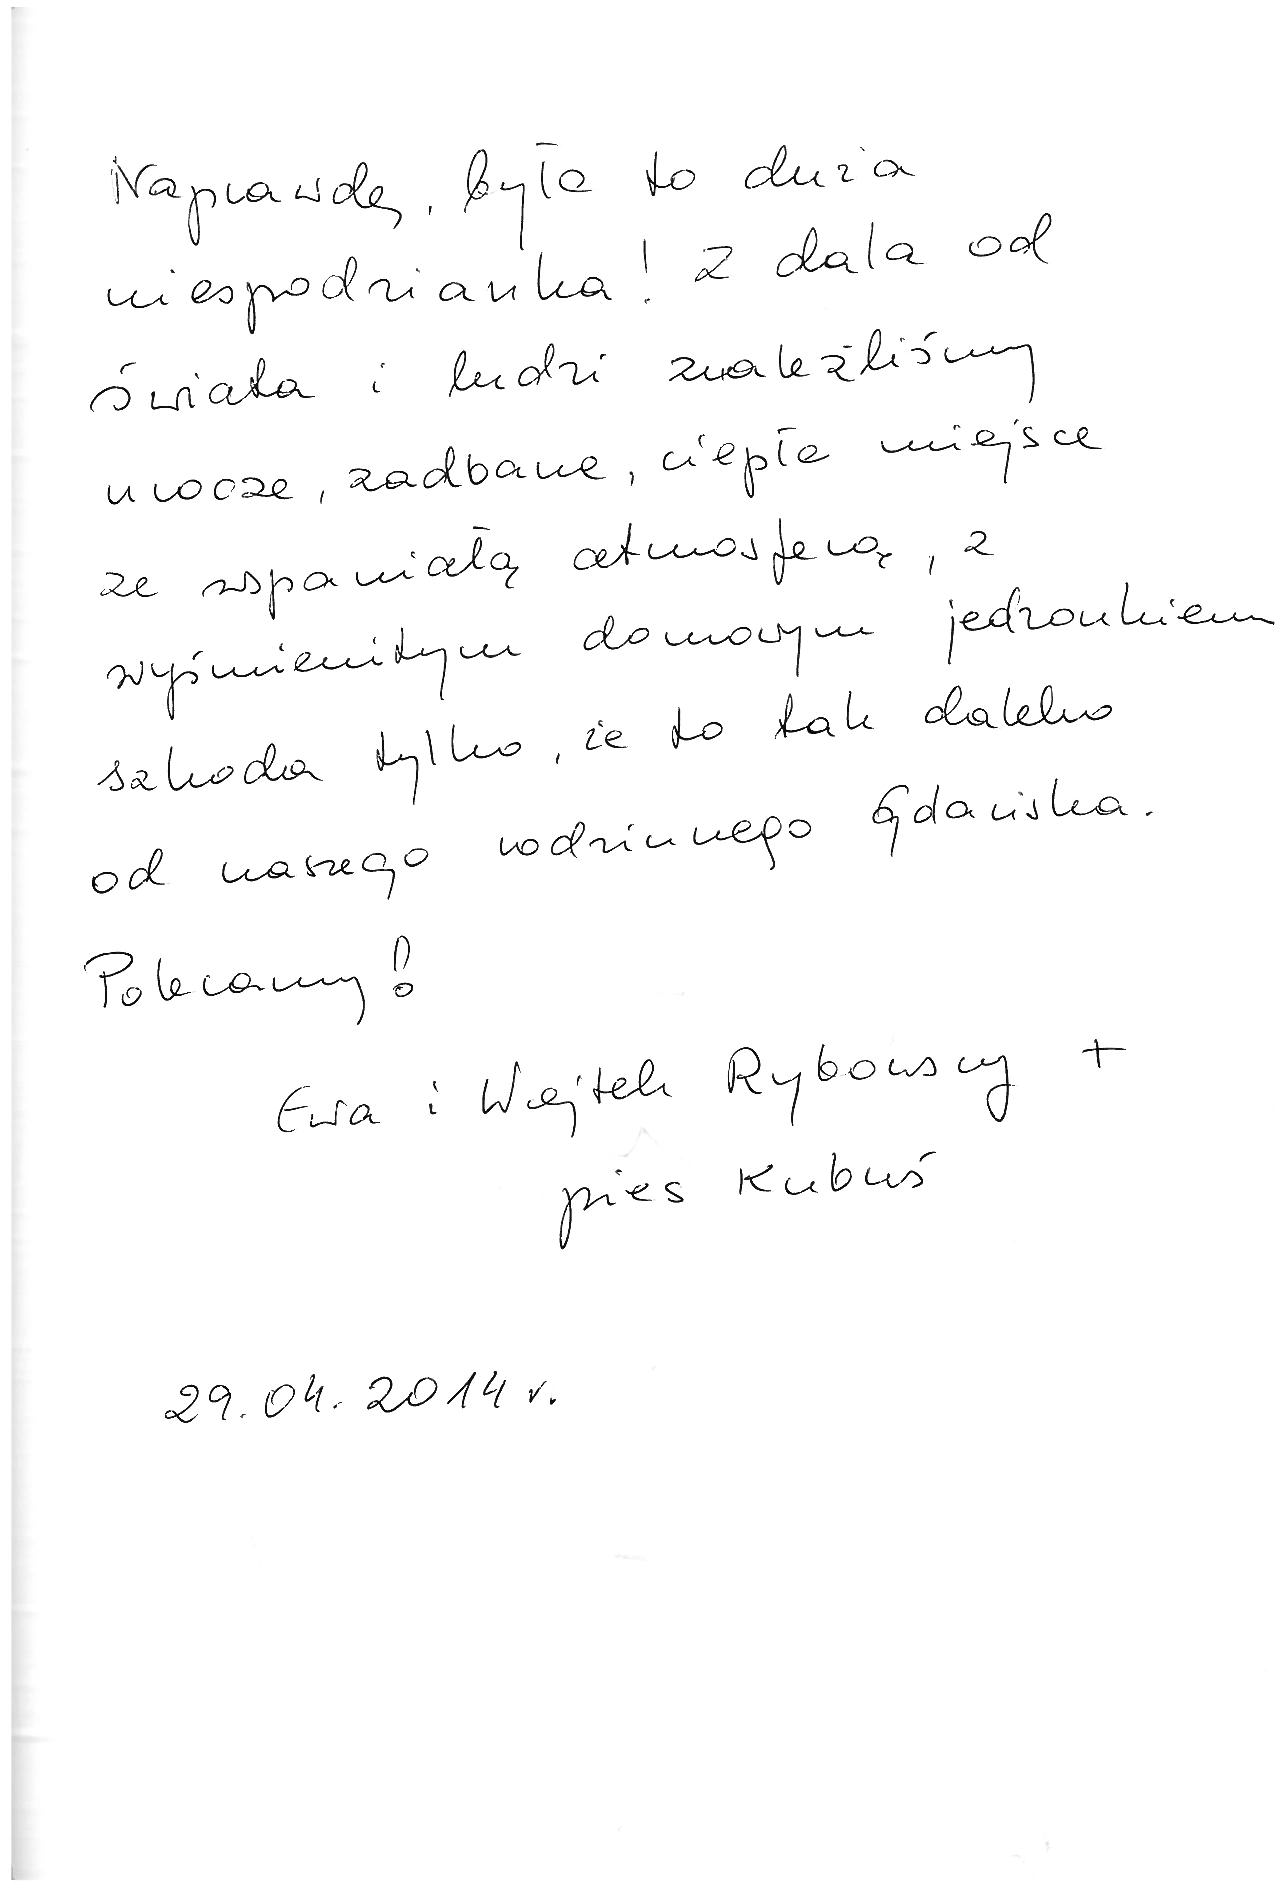 Naprawdę, była to duża
niespodzianka! Z dala od
świata i ludzi znaleźliśmy
urocze, zadbane, ciepłe miejsce
ze wspaniałą atmosferą, z
wyśmienitym domowym jedzonkiem
szkoda tylko, że to tak daleko
od naszego rodzinnego Gdańska.
Polecamy!
Ewa i Wojtek Rybowscy +
pies Kubuś
29.04.2014 r.